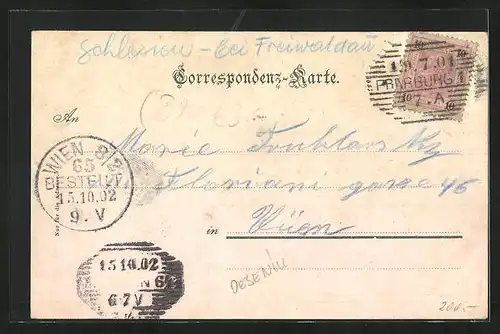 Schlesien - bei Freiwaldau
Correspondenz-Karte.
An
Marie
Floriani gasse 46
in Wien
WIEN 8/2
65
BESTELLT
15.10.02
9. V
15 10 02
6-7V
7.01
DESENIU
200.-